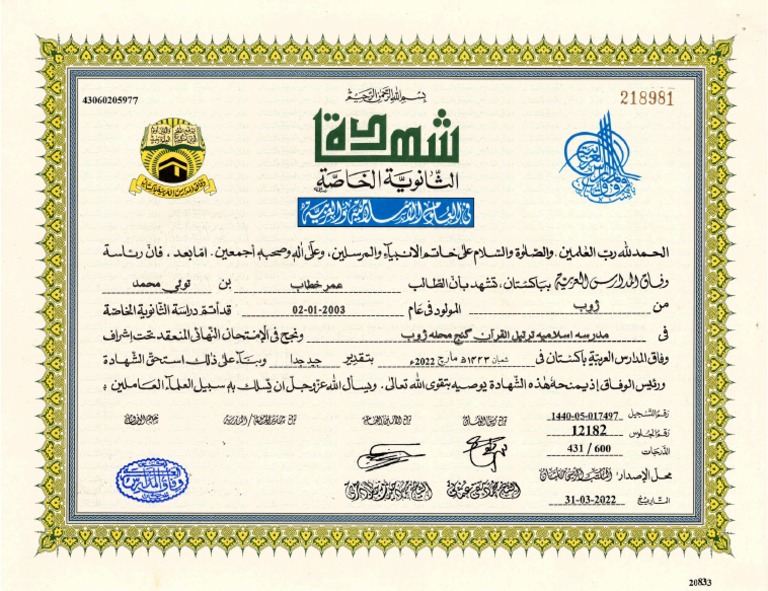 43060205977
بسم الله الرحمن الرحيم
218981
شهادة
الثانوية الخاصة
في العلوم الإسلامية والعربية
الحمد لله رب العلمين، والصلوة والسلام على خاتم الانبياء والمرسلين، وعلى اله وصحبه أجمعين. امّا بعد، فانّ رئاسة
وفاق المدارس العربية بباكستان، تشهد بأنّ الطالب عمر خطاب بن تولی محمد
من ژوب المولود في عام 02-01-2003 قد أتم دراسة الثانوية الخاصة
في مدرسه اسلاميه ترتيل القرآن گنج محله ژوب ونجح في الإمتحان النهائي المنعقد تحت إشراف
وفاق المدارس العربية باكستان في شعبان ۱۴۴۳ھ مارچ 2022ء بتقدير جيد جدا وبناء على ذلك استحق الشهادة
ورئيس الوفاق إذ يمنحه هذه الشهادة يوصيه بتقوى الله تعالى. ويسأل الله عزّ وجلّ ان يسلك به سبيل العلماء العاملين ؛
رقم التسجيل 1440-05-017497
رقم الجلوس 12182
الدرجات 431 / 600
محل الإصدار:
التاريخ 31-03-2022
وفاق المدارس
20833